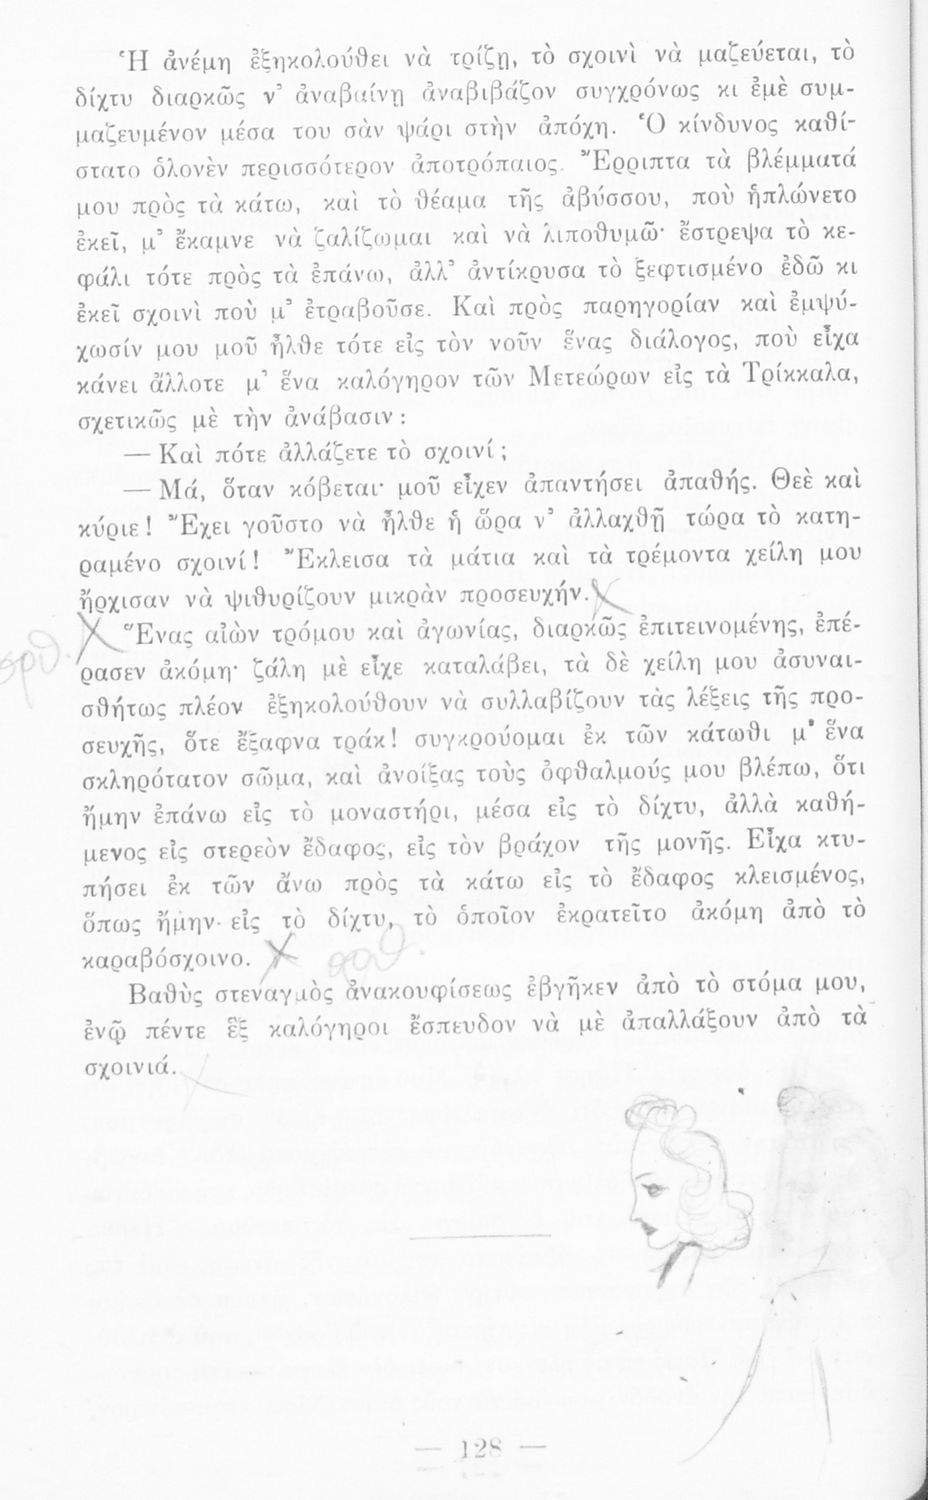 Ἡ ἀνέμη ἐξηκολούθει νὰ τρίζῃ, τὸ σχοινὶ νὰ μαζεύεται, τὸ
δίχτυ διαρκῶς ν᾽ ἀναβαίνῃ ἀναβιβάζον συγχρόνως κι ἐμὲ συμ-
μαζευμένον μέσα του σὰν ψάρι στὴν ἀπόχη. Ὁ κίνδυνος καθί-
στατο ὁλονὲν περισσότερον ἀποτρόπαιος. Ἔρριπτα τὰ βλέμματά
μου πρὸς τὰ κάτω, καὶ τὸ θέαμα τῆς ἀβύσσου, ποὺ ἡπλώνετο
ἐκεῖ, μ᾽ ἔκαμνε νὰ ζαλίζωμαι καὶ νὰ λιποθυμῶ· ἔστρεψα τὸ κε-
φάλι τότε πρὸς τὰ ἐπάνω, ἀλλ᾽ ἀντίκρυσα τὸ ξεφτισμένο ἐδῶ κι
ἐκεῖ σχοινὶ ποὺ μ᾽ ἐτραβοῦσε. Καὶ πρὸς παρηγορίαν καὶ ἐμψύ-
χωσίν μου μοῦ ἦλθε τότε εἰς τὸν νοῦν ἕνας διάλογος, ποὺ εἶχα
κάνει ἄλλοτε μ᾽ ἕνα καλόγηρον τῶν Μετεώρων εἰς τὰ Τρίκκαλα,
σχετικῶς μὲ τὴν ἀνάβασιν :
— Καὶ πότε ἀλλάζετε τὸ σχοινί ;
— Μά, ὅταν κόβεται· μοῦ εἶχεν ἀπαντήσει ἀπαθής. Θεὲ καὶ
κύριε! Ἔχει γοῦστο νὰ ἦλθε ἡ ὥρα ν᾽ ἀλλαχθῇ τώρα τὸ κατη-
ραμένο σχοινί! Ἔκλεισα τὰ μάτια καὶ τὰ τρέμοντα χείλη μου
ἤρχισαν νὰ ψιθυρίζουν μικρὰν προσευχήν.
Ἕνας αἰὼν τρόμου καὶ ἀγωνίας, διαρκῶς ἐπιτεινομένης, ἐπέ-
ρασεν ἀκόμη· ζάλη μὲ εἶχε καταλάβει, τὰ δὲ χείλη μου ἀσυναι-
σθήτως πλέον ἐξηκολούθουν νὰ συλλαβίζουν τὰς λέξεις τῆς προ-
σευχῆς, ὅτε ἔξαφνα τράκ! συγκρούομαι ἐκ τῶν κάτωθι μ᾽ ἕνα
σκληρότατον σῶμα, καὶ ἀνοίξας τοὺς ὀφθαλμούς μου βλέπω, ὅτι
ἤμην ἐπάνω εἰς τὸ μοναστήρι, μέσα εἰς τὸ δίχτυ, ἀλλὰ καθή-
μενος εἰς στερεὸν ἔδαφος, εἰς τὸν βράχον τῆς μονῆς. Εἶχα κτυ-
πήσει ἐκ τῶν ἄνω πρὸς τὰ κάτω εἰς τὸ ἔδαφος κλεισμένος,
ὅπως ἤμην εἰς τὸ δίχτυ, τὸ ὁποῖον ἐκρατεῖτο ἀκόμη ἀπὸ τὸ
καραβόσχοινο.
Βαθὺς στεναγμὸς ἀνακουφίσεως ἐβγῆκεν ἀπὸ τὸ στόμα μου,
ἐνῷ πέντε ἓξ καλόγηροι ἔσπευδον νὰ μὲ ἀπαλλάξουν ἀπὸ τὰ
σχοινιά.
— 128 —